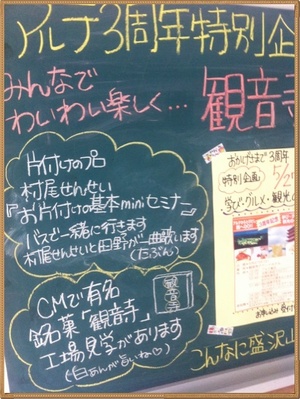 イルデ3周年特別企
みんなで
わいわい楽しく…
観音寺
片付けのプロ
村尾せんせい
『お片付けの基本miniセミナー』
バスで一緒に行きます
村尾せんせいと田野が一曲歌います
(たぶん)
CMで有名
銘菓「観音寺」
工場見学があります
(白あんが旨いね♡)
観音寺
おかげさまで3周年
特別企画
5/2
学び・グルメ・観光
お申し込み受付
こんなに盛沢山